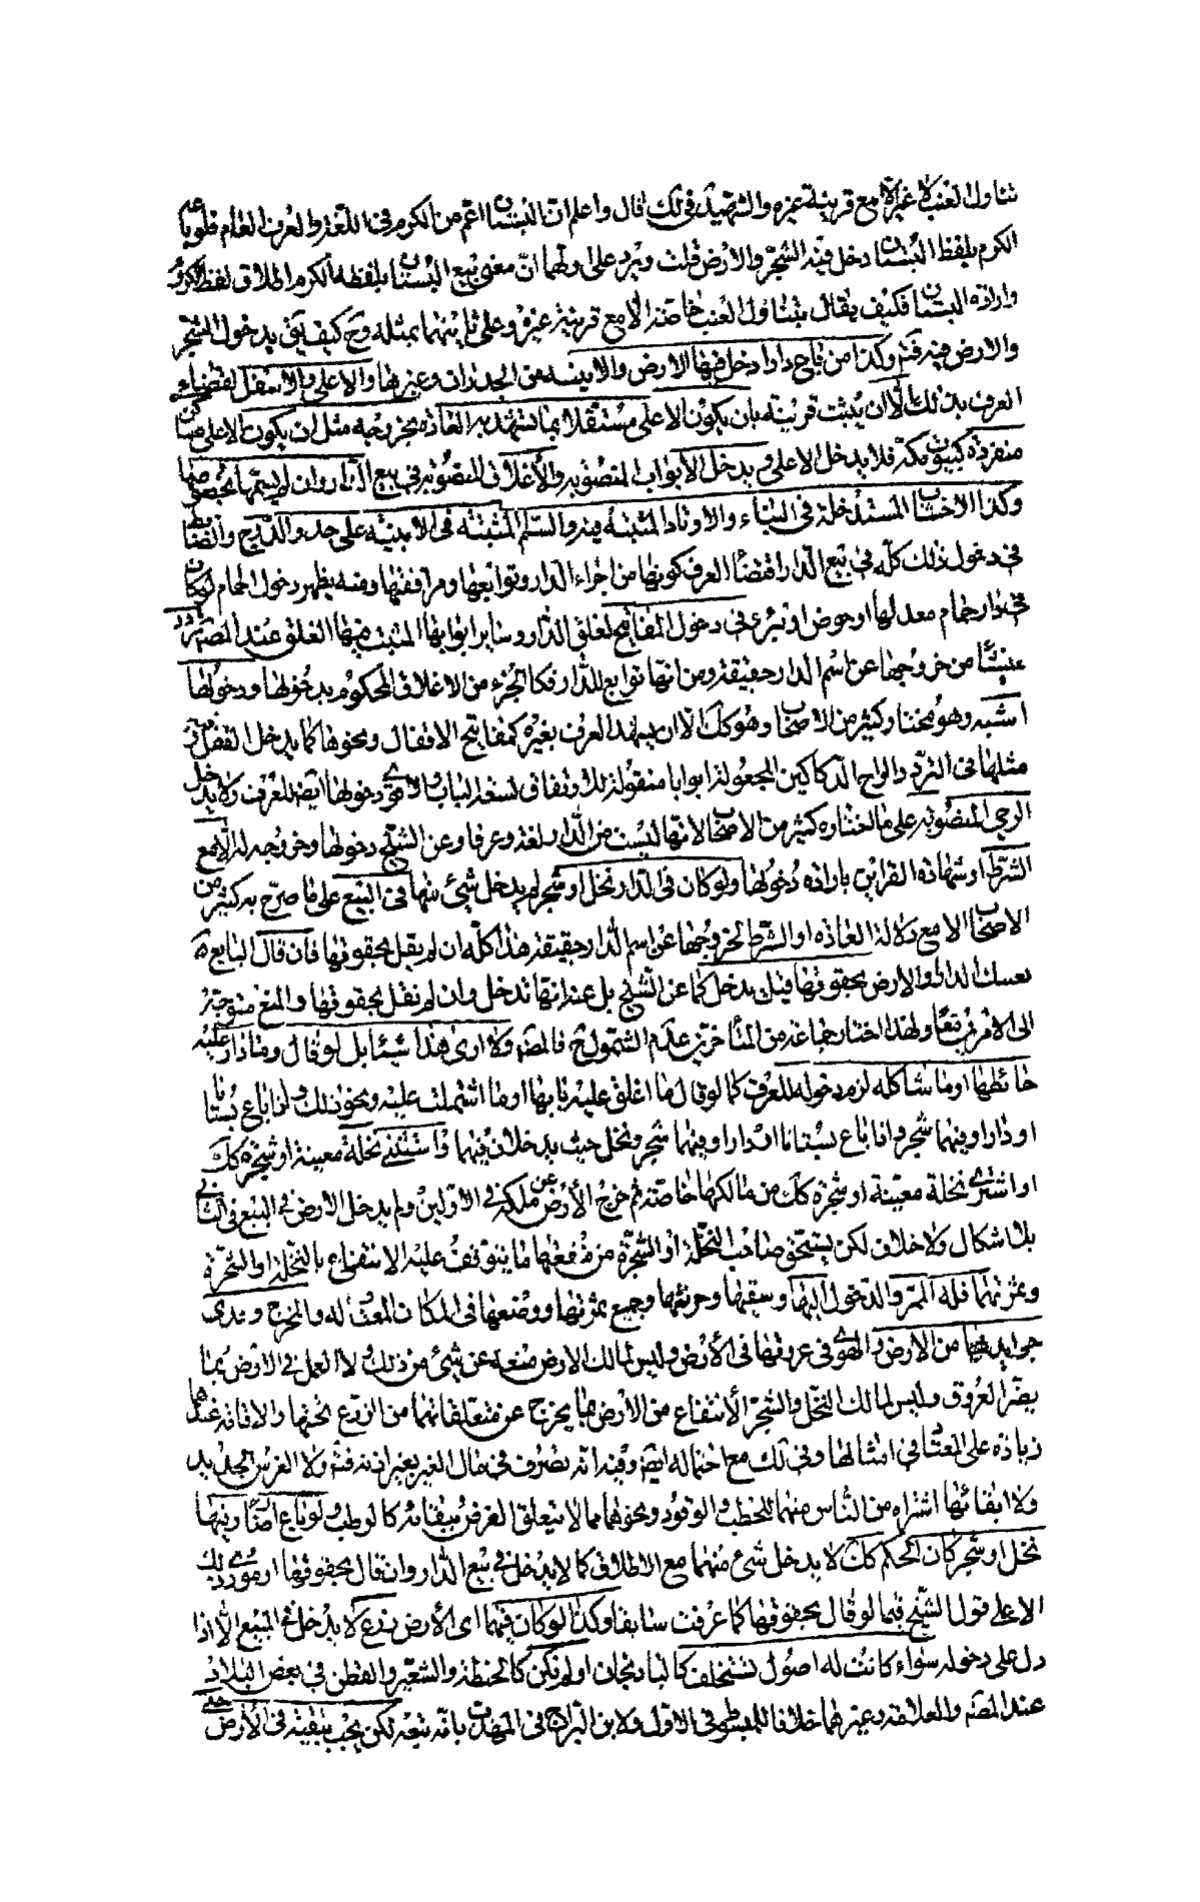 تناول العنب لا غيره الا مع قرينة غيره والشهيد في لك قال واعلم ان البستان اعم من الكرم في اللغة والعرف العام فلو باع
الكرم بلفظ البستان دخل فيه الشجر والأرض قلت ويرد على اولهما ان معنى بيع البستان بلفظه الكرم اطلاق لفظ الكرم
وارادة البستان فكيف يقال يتناول العنب خاصة الا مع قرينة غيره وعلى ثانيهما بمثله وح كيف يدخول الشجر
والارض فيه فتم وكذا من باع دارا دخل فيها الارض والابنية من الجدران وغيرها والاعلى والاسفل لقضاء
العرف بذلك الا ان يثبت قرينة بان يكون الاعلى مستقلا بما تشهد به العادة بخروجه مثل ان يكون الاعلى مساكن
منفردة كبيوت مكة فلا يدخل الاعلى ويدخل الابواب المنصوبه والأغلاق المنصوبة في بيع الدار وان لم يسمها بخصوصها
وكذا الاخشاب المستدخلة في البناء والاوتاد المثبتة فيه والسلم المثبتة في الابنية على حد والدرج والضابط
في دخول ذلك كله في بيع الدار اقتضاء العرف كونها من اجزاء الدار وتوابعها ومرافقها ومنه يظهر دخول الحمام لو كان
في دار حمام معد لها او حوض او بئر وفي دخول المفاتيح لغلق الدار وساير ابوابها المثبت فيها الغلق عند المصنف تردد
ينشأ من خروجها عن اسم الدار حقيقة ومن انها توابع للدار فكالجزء من الاغلاق المحكوم بدخولها ودخولها
اشبه وهو مختار كثير من الاصحاب وهو كك الا ان يشهد العرف بغيره كمفاتيح الاقفال ونحوها كما يدخل القفل
مثلها في التردد والواح الدكاكين المجعولة ابوابا منقولة للارتفاق لسعة الباب والاقوى دخولها ايضا للعرف ولا يدخل
الرحى المنصوبه على ما اختاره كثير من الاصحاب لانها ليست من الدار لغة وعرفا وعن الشيخ دخولها وخروجه له الا مع
الشرط او شهادة القراين بارادة دخولها ولو كان في الدار نخل او شجر لم يدخل شيء منها في البيع على ما صرح به كثير من
الاصحاب الا مع دلالة العادة او الشرط لخروجها عن اسم الدار حقيقة هذا كله ان لم يقل بحقوقها فان قال البايع
بعتك الدار والارض بحقوقها قيل يدخل كما عن الشيخ بل عنه انها تدخل وان لم يقل بحقوقها والمنع متوجه
الى الامرين معا ولهذا اختار جماعة من المتأخرين عدم الشمول ح قال المصنف ولا ارى هذا شيئا بل لو قال وما دار عليه
حائطها او ما شاكله لزم دخوله للعرف كما لو قال ما اغلق عليه بابها او ما اشتملت عليه ونحو ذلك ولو باع بستانا
او دارا وفيها شجر واذا باع بستانا او دارا وفيهما شجر ونخل حيث يدخلان فيهما واستثنى نخلة معينة او شجرة كك
او اشترى نخلة معينة او شجرة كك من مالكها خاصة لم خرج الأرض عن ملكه في الاولين ولم يدخل الارض في البيع في الثاني
بلا اشكال ولا خلاف لكن يستحق صاحب النخلة او الشجرة من منفعتها ما يتوقف عليه الانتفاع بالنخلة او الشجرة
وثمرتهما فله الممر والدخول اليها وسقيها وحرثها وجمع ثمرتها ووضعها في المكان المعتاد له والمخرج ومدى
جرايدها من الارض والهوى في عروقها في الأرض وليس لمالك الارض منعه عن شيء من ذلك ولا العمل في الارض بما
يضر العروق وليس لمالك النخل والشجر الانتفاع من الأرض بما يخرج عن متعلقاتهما من الزرع تحتها والاقامة عندها
زيادة على المعتاد في امثالها وفي لك مع احتماله ايضا وفيه انه تصرف في مال الغير بغير اذنه فتم ولا الغرس الجديد
ولا ابقائها اشتراه من الناس منهما للحطب والوقود ونحوهما مما لا يتعلق الغرض ببقائه كالرطب ولو باع ارضا وفيها
نخل او شجر كان الحكم كك لا يدخل شيء منهما مع الاطلاق كما لا يدخل في بيع الدار وان قال بحقوقها
الا على قول الشيخ فيما لو قال بحقوقها كما عرفت سابقا وكذا لو كان فيها اى الأرض زرع لا يدخل في المبيع الا اذا
دل على دخوله سواء كانت له اصول تستخلف كالباذنجان او لم تكن كالحنطة والشعير والقطن في بعض البلاد
عند المصنف والعلامة وغيرهما خلافا للمبسوط في الاول ولابن البراج في المهذب بانه يتبعه لكن يجب تبقيته في الأرض حتى